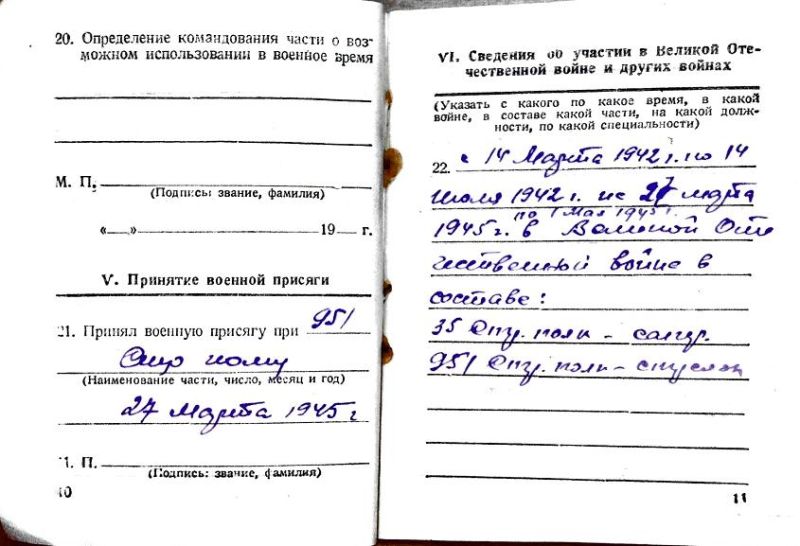 20. Определение командования части о воз-
можном использовании в военное время
М. П.
(Подпись: звание, фамилия)
«—» 19— г.
V. Принятие военной присяги
21. Принял военную присягу при 951
Стр полку
(Наименование части, число, месяц и год)
27 марта 1945 г
М. П.
(Подпись: звание, фамилия)
10
VI. Сведения об участии в Великой Оте-
чественной войне и других войнах
(Указать с какого по какое время, в какой
войне, в составе какой части, на какой долж-
ности, по какой специальности)
22. с 14 Марта 1942 г. по 14
Июля 1942 г. и с 27 марта
по 1 Мая 1945 г.
1945 г. в Великой Оте
чественной войне в
составе:
35 Стр. полк -
951 Стр. полк - стрелок
11